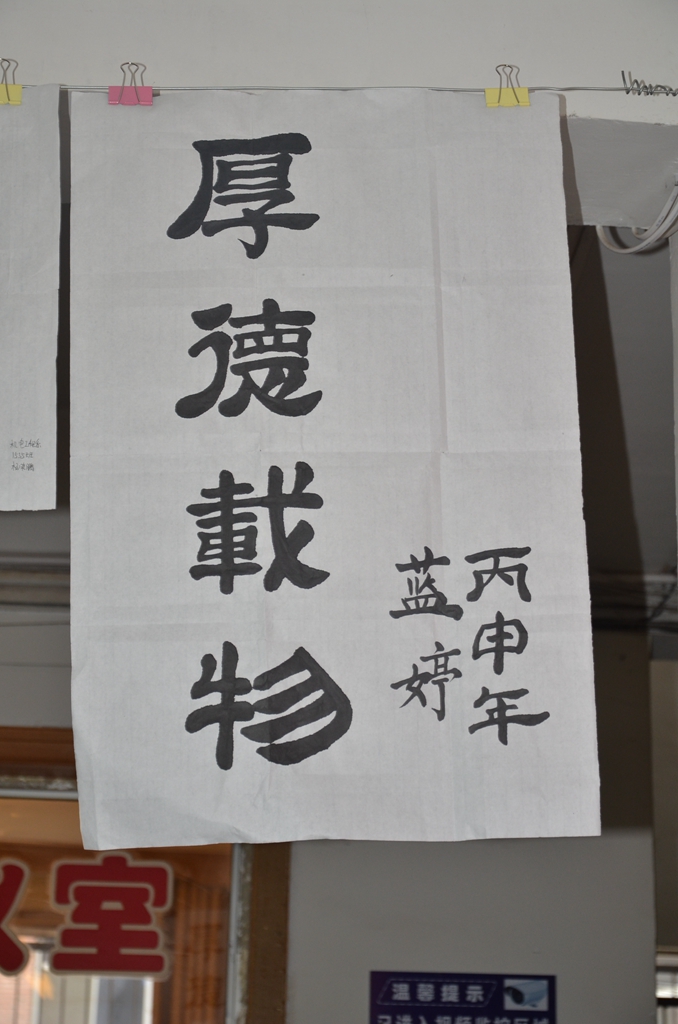 厚德載物
丙申年
蓝婷
室
温馨提示